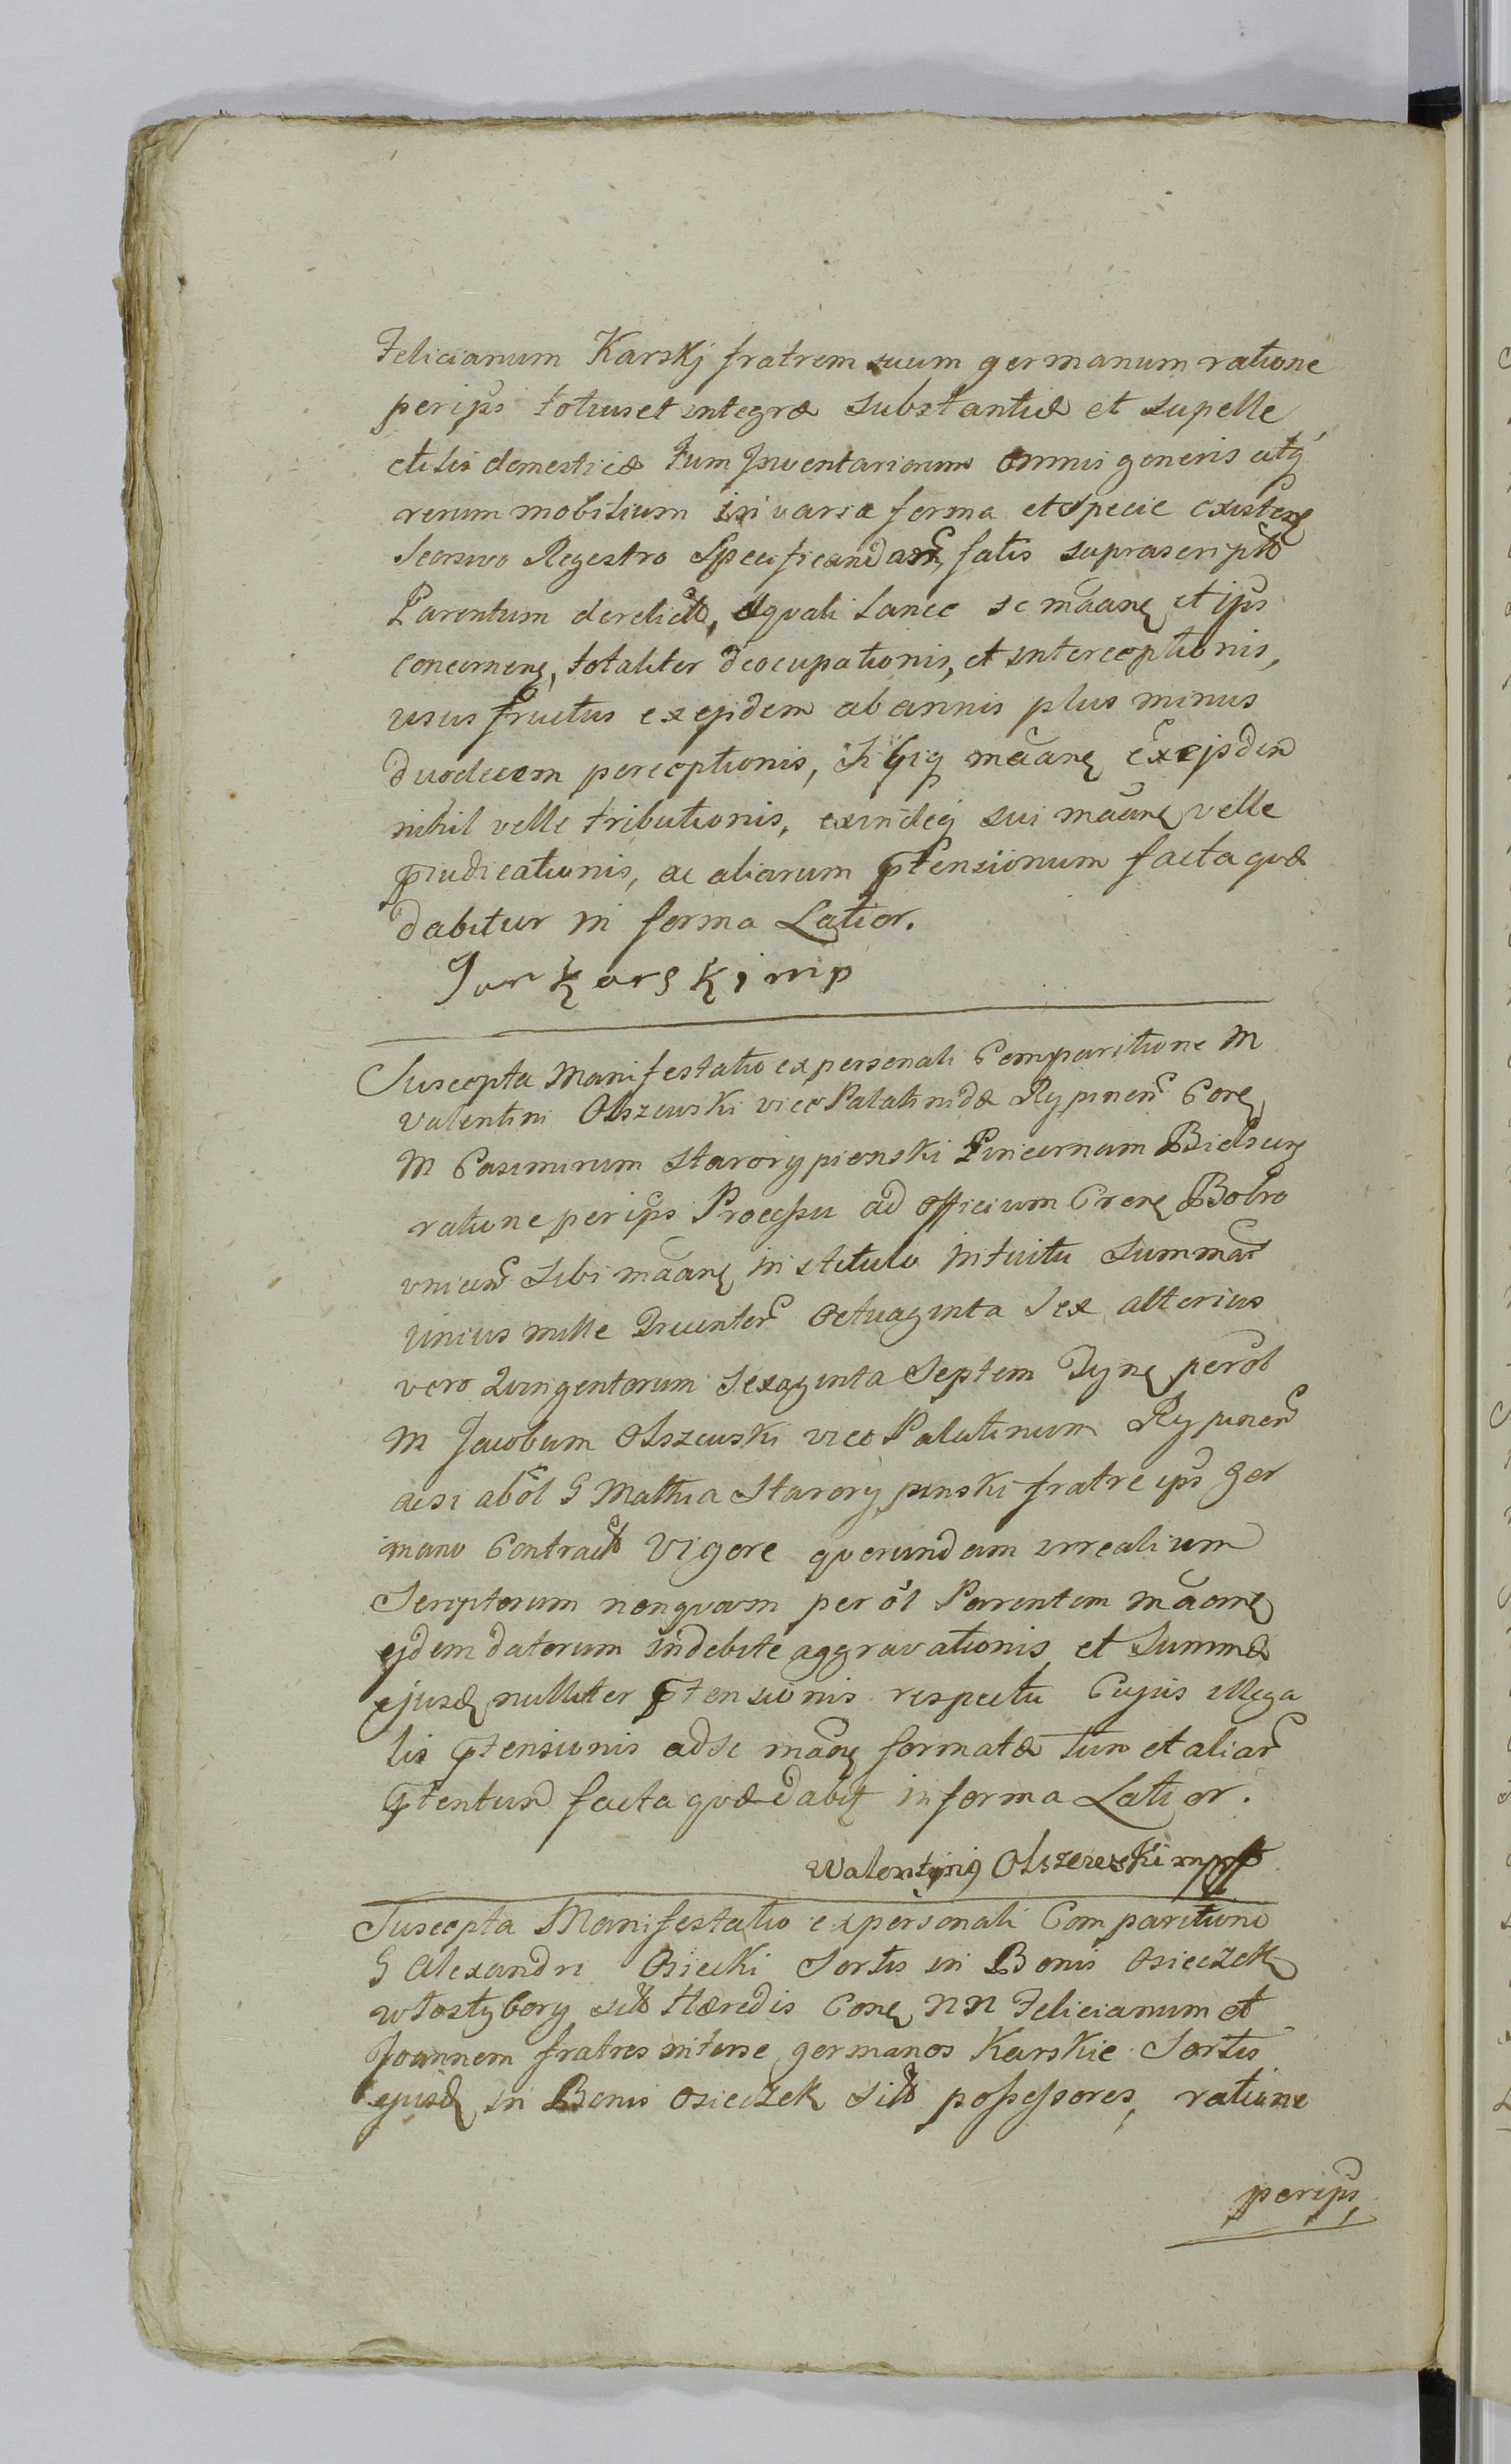 Felicianum Karskj fratrem suum germanum ratione
per ips totius et integræ substantiæ et supelle
ctilis domesticæ tum Inventariorum omnis generis atq
rerum mobilium in varia forma et specie existen
Seorsivo Regestro Specificandar fatis suprascript
Parentum derelict, æquali lance se maane et ips
concernen, totaliter deocupationis, et interceptionis,
usus fructus ex ejsdem ab annis plus minus
duodecem perceptionis, maane ex ejsdem
nihil velle tributionis, exindeq sui maane velle
pjudicationis, ac aliarum ptensionum facta quæ
dabitur in forma Latior.
Jan Karski mp
Suscepta Manifestatio ex personali Comparitione M
Valentini Olszewski vice Palatinidæ Rypinen Cone
M Casimirum Starorypienski Pincernam Bielscen
ratione per ips Processu ad Officium Crene Bobro
vnicen Sibi maane instituto intuitu Summar
unius mille Ducentor Octuaginta Sex alterius
vero Quingentorum Sexaginta Septem Tyne per ol
M Jacobum Olszewski vice Palatinum Rypinen
acsi ab ol G Mathia Starorypinski fratre ips ger
mano Contract Vigore quorundam irrealium
Scriptorum nonquam per ol Parentem maane
ejdem datorum indebite aggravationis, et Summæ
ejusd nulliter ptensionis respectu Cujus illega
lis ptensionis ad se maane formatæ tum et aliar
ptentus facta quæ dabit in forma Latior.
Walentynig Olszewski mpp
Suscepta Manifestatio ex personali Comparitione
G Alexandri Osiecki Sortis in Bonis Osieczek
włostybory sit Hæredis Cone NN Felicianum et
Joannem fratres inter se germanos Karskie Sortis
ejusd in Bonis Osieczek sit possessores, ratione
per ips,